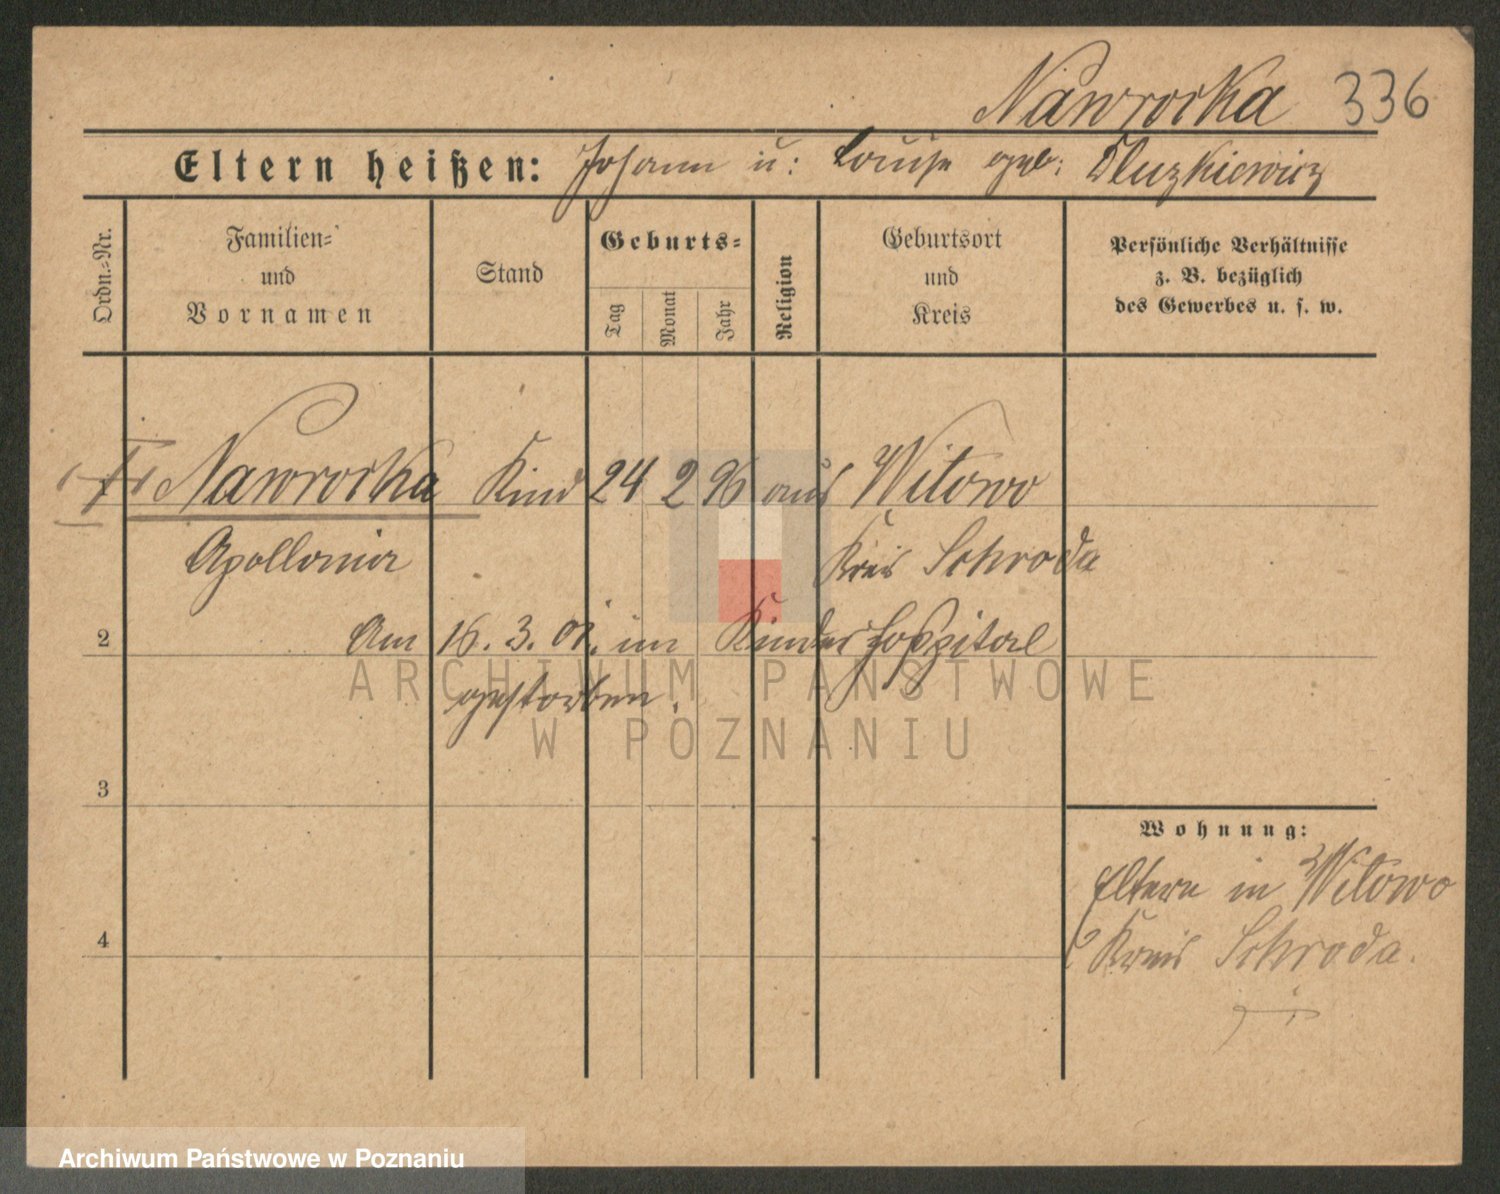 Nawrocka 336
Eltern heißen: Johann u: Louise geb: Dluzkiewicz
Ordn.-Nr.
Familien- und Vornamen
Stand
Geburts-
Tag
Monat
Jahr
Religion
Geburtsort und Kreis
Persönliche Verhältnisse
z. B. bezüglich
des Gewerbes u. s. w.
Nawrocka Kind 24 2 96 aus Witowo
Apollonia Kreis Schroda
2 Am 16. 3. 01. im Kinderhospital
gestorben.
3
Wohnung:
Eltern in Witowo
4 Kreis Schroda.
ARCHIWUM PAŃSTWOWE
W POZNANIU
Archiwum Państwowe w Poznaniu